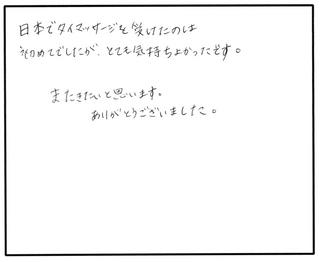 日本でタイマッサージを受けたのは
初めてでしたが、とても気持ちよかったです。
またきたいと思います。
ありがとうございました。